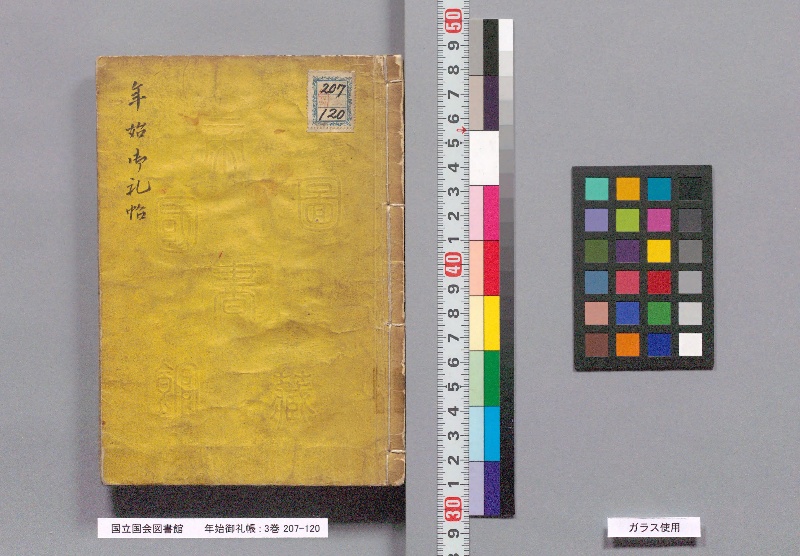 年始御礼帖
207
120
50
9
8
7
6
5
4
3
2
1
40
9
8
7
6
5
4
3
2
1
30
9
国立国会図書館 年始御礼帳 : 3巻 207-120
ガラス使用